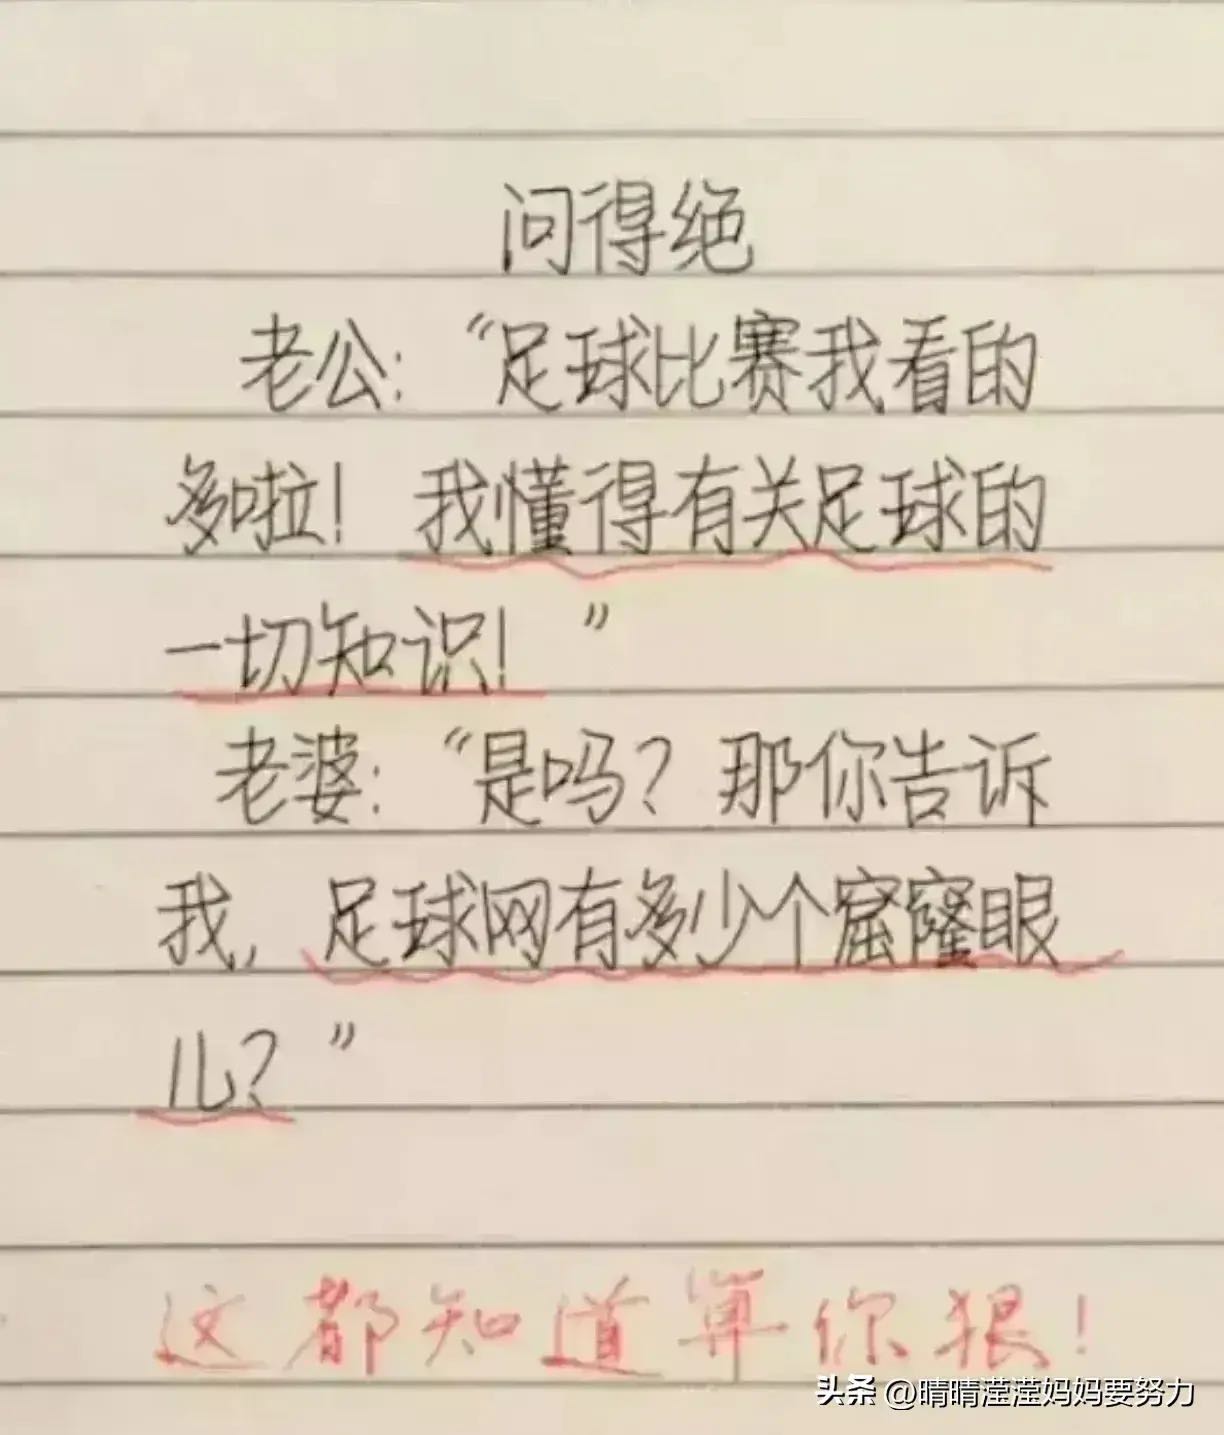 问得绝
老公：“足球比赛我看的
多啦！我懂得有关足球的
一切知识！”
老婆：“是吗？那你告诉
我，足球网有多少个窟窿眼
儿？”
这都知道算你狠！
头条 @晴晴滢滢妈妈要努力